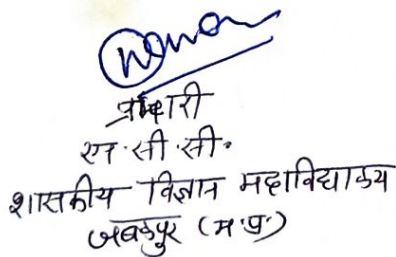 प्रभारी
एन.सी.सी.
शासकीय विज्ञान महाविद्यालय
जबलपुर (म.प्र.)